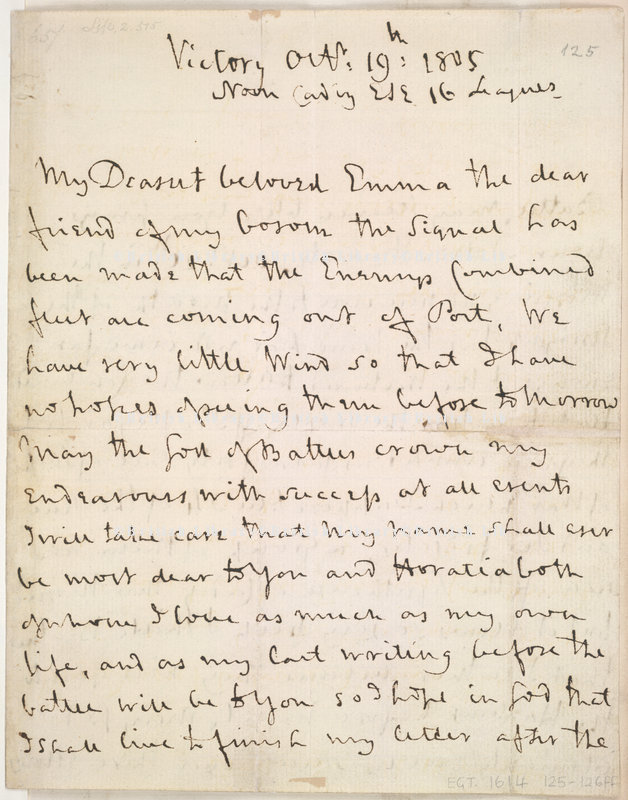 125
Victory Octr: 19th: 1805
Noon Cadiz ESE 16 Leagues
My Dearest beloved Emma the dear
friend of my bosom the Signal has
been made that the Enemys Combined
fleet are coming out of Port, We
have very little Wind so that I have
no hopes of seeing them before tomorrow
May the God of Battles crown my
Endeavours with success at all events
I will take care that my name shall ever
be most dear to You and Horatia both
of whom I love as much as my own
life, and as my last writing before the
battle will be to You so I hope in God that
I shall live to finish my letter after the
EGT. 1614 125-126ff